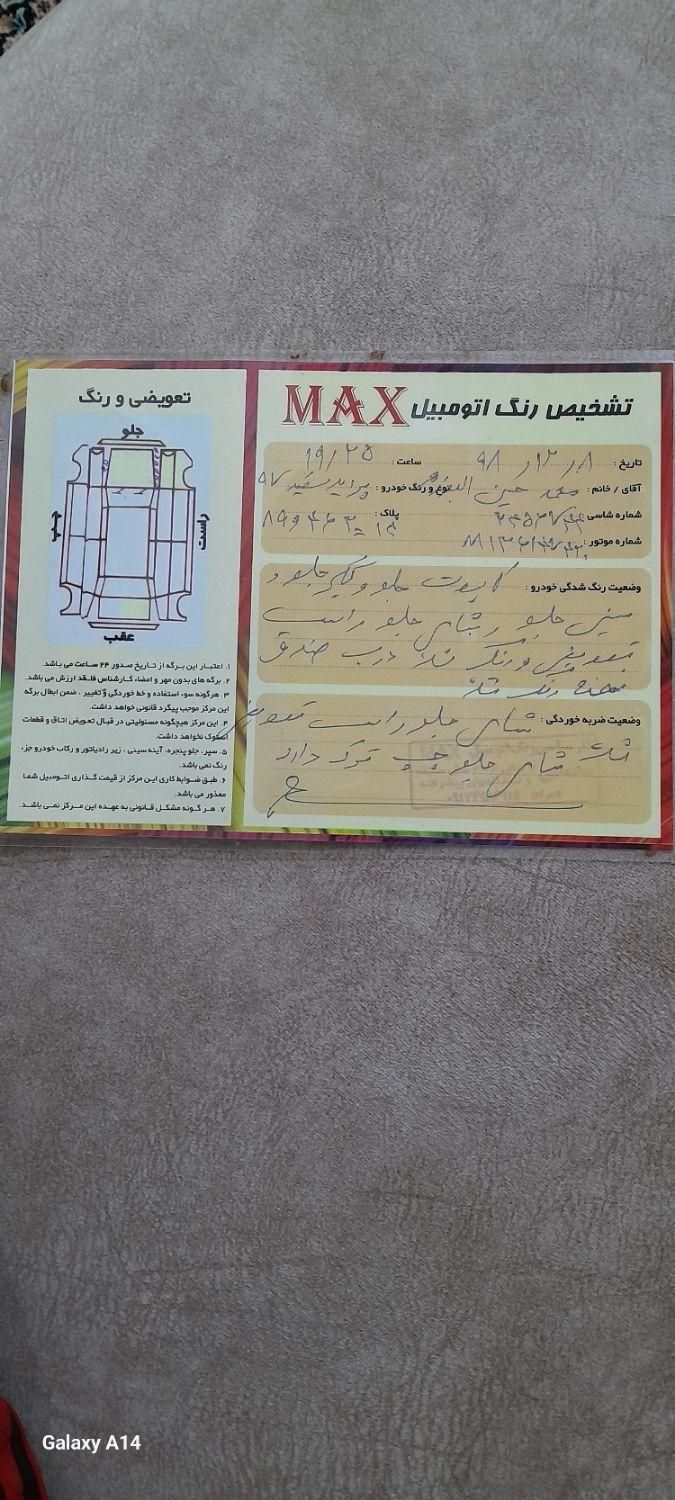 تشخیص رنگ اتومبیل MAX
تاریخ : ۹۸/۱۲/۸ ساعت : ۱۹/۲۵
آقای / خانم : محمد حسین نوع و رنگ خودرو : پراید سفید ۹۷
شماره شاسی : پلاک :
شماره موتور :
وضعیت رنگ شدگی خودرو : کاپوت جلو و گلگیر جلو و
سینی جلو و شاسی جلو راست
تعویض و رنگ شده درب صندوق
عقب رنگ شده
وضعیت ضربه خوردگی : شاسی جلو راست تعویض
شده شاسی جلو چپ ترک دارد
تعویضی و رنگ
جلو
چپ
راست
عقب
۱. اعتبار این برگه از تاریخ صدور ۲۴ ساعت می باشد.
۲. برگه های بدون مهر و امضاء کارشناس فاقد ارزش می باشد.
۳. هرگونه سوء استفاده و خط خوردگی و تغییر ، ضمن ابطال برگه
این مرکز موجب پیگرد قانونی خواهد داشت.
۴. این مرکز هیچگونه مسئولیتی در قبال تعویض اتاق و قطعات
استوک نخواهد داشت.
۵. سپر، جلو پنجره، آینه سینی ، زیر رادیاتور و رکاب خودرو جزء
رنگ نمی باشد.
۶. طبق ضوابط کاری این مرکز از قیمت گذاری اتومبیل شما
معذور می باشد.
۷. هر گونه مشکل قانونی به عهده این مرکز نمی باشد.
Galaxy A14